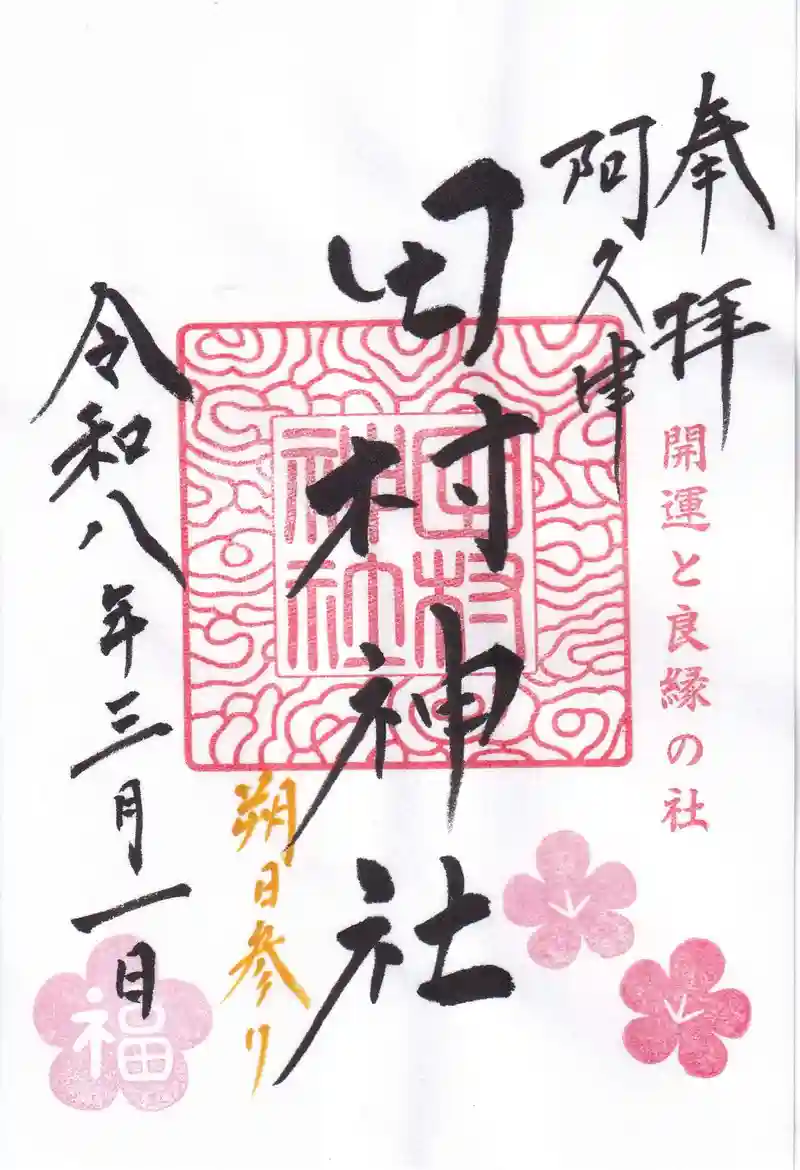 奉拝
阿久津
開運と良縁の社
田村神社
田村神社
朔日参り
令和八年三月一日
福